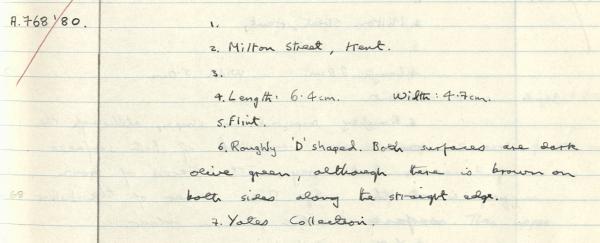 A.768'80.
1.
2. Milton Street, Kent.
3.
4. Length: 6.4cm. Width: 4.7cm.
5. Flint.
6. Roughly 'D' shaped. Both surfaces are dark
olive green, although there is brown on
both sides along the straight edge.
7. Yates Collection.